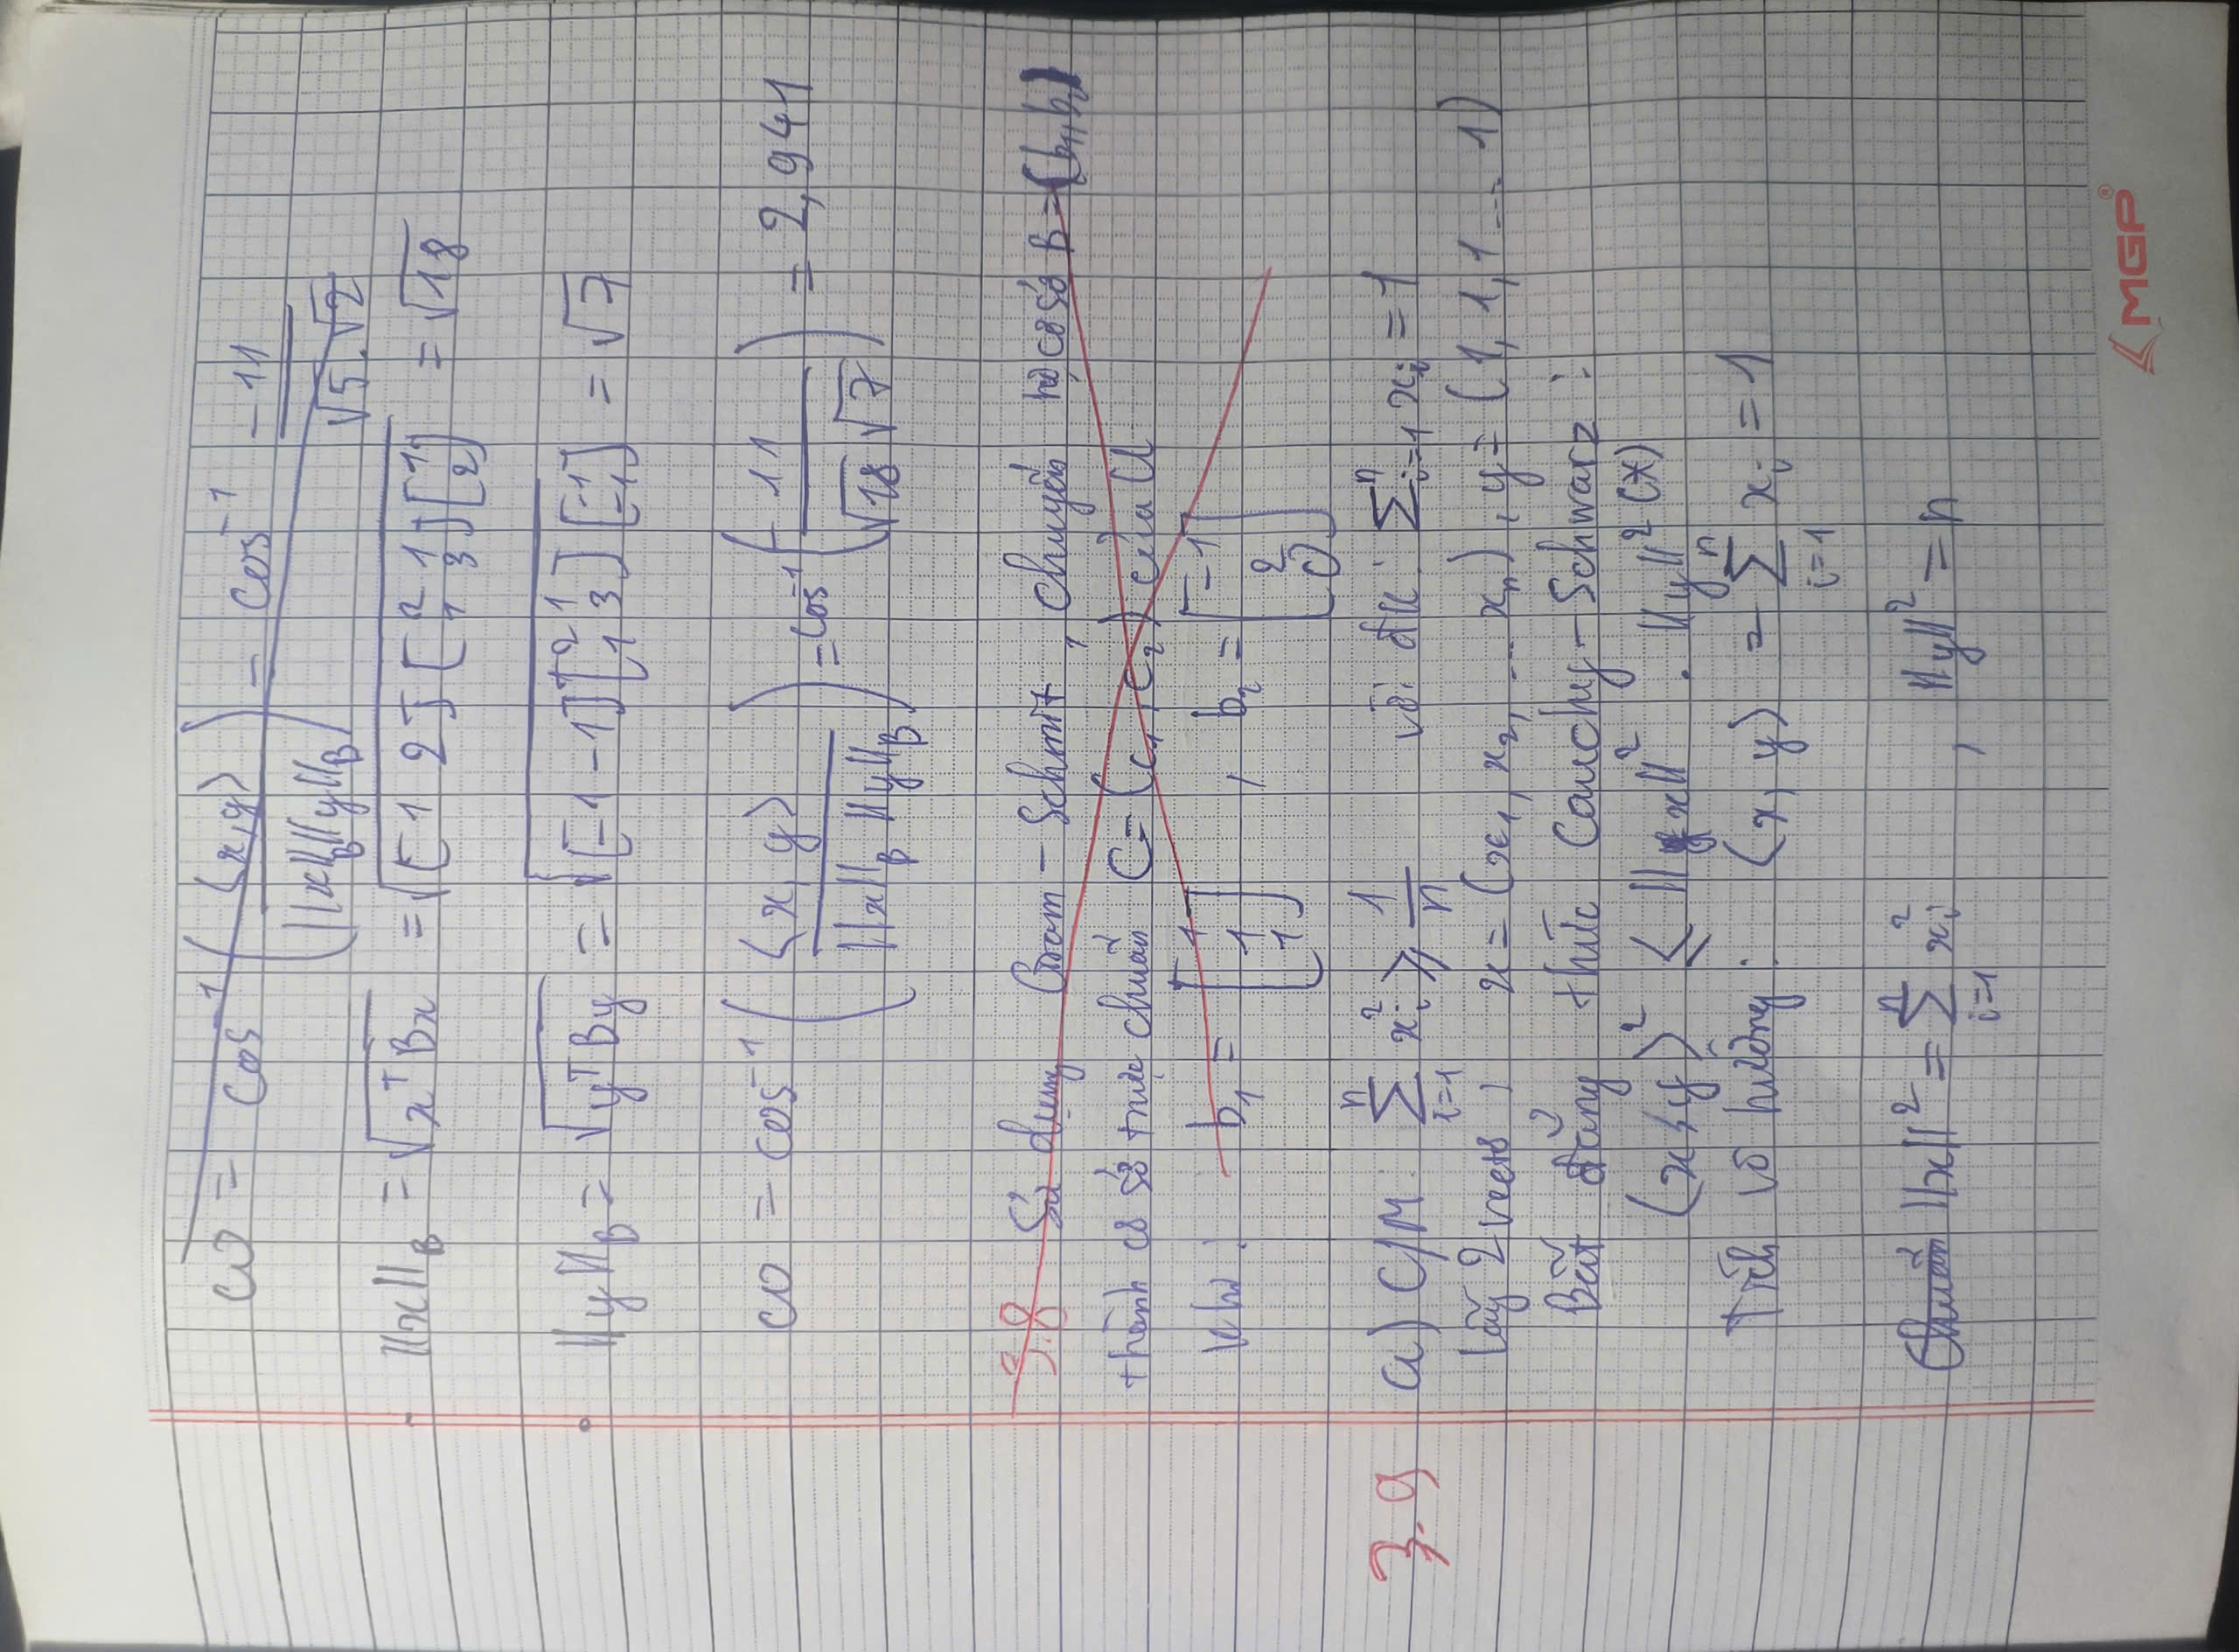 ω = cos⁻¹ ( <x,y> / ||x||_B ||y||_B ) = cos⁻¹ -11 / √5.√2
||x||_B = √(xᵀBx) = √([1 2] [2 1 1 3] [1 2]) = √18
||y||_B = √(yᵀBy) = √([-1 -1] [2 1 1 3] [-1 -1]) = √7
ω = cos⁻¹ ( <x,y> / ||x||_B ||y||_B ) = cos⁻¹ ( -11 / √18 √7 ) = 2,941
3.8 Sử dụng Gram - Schmit, chuyển họ cơ sở B = (b₁, b₂)
thành cơ sở trực chuẩn C = (c₁, c₂) của U
b₁ = [1 1 1], b₂ = [-1 2 0]
3.9
a) C/M: ∑ⁿᵢ₌₁ xᵢ² ≥ 1/n với đk: ∑ⁿᵢ₌₁ xᵢ = 1
Lấy 2 vectơ, x = (x₁, x₂, ... xₙ), y = (1, 1, 1, 1 ... 1)
Bất đẳng thức Cauchy - Schwarz:
<x,y>² ≤ ||x||² . ||y||² (*)
Tích vô hướng: <x,y> = ∑ⁿᵢ₌₁ xᵢ = 1
Chuẩn ||x||² = ∑ⁿᵢ₌₁ xᵢ² , ||y||² = n
MGP®